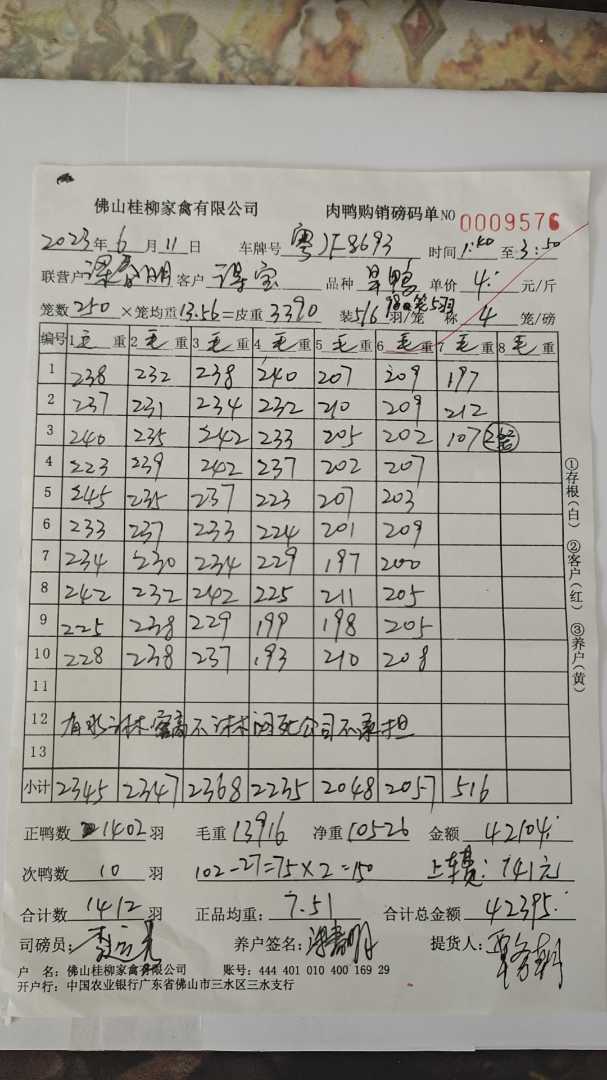 佛山桂柳家禽有限公司 肉鸭购销磅码单 NO 0009576
2023年6月11日 车牌号 粤JF8693 时间 1:40 至 3:50
联营户 明 客户 宝 品种 鸭 单价 4. 元/斤
笼数 250 ×笼均重 13.56=皮重 3390 装 5/6 羽/笼 称 4 笼/磅
编号 1 毛 重 2 毛 重 3 毛 重 4 毛 重 5 毛 重 6 毛 重 7 毛 重 8 毛 重
1 238 232 238 240 207 209 197
2 237 231 234 232 210 209 212
3 240 235 242 233 205 202 107
4 223 239 242 237 202 207
5 245 235 237 223 207 203
6 233 237 233 224 201 209
7 234 230 234 229 197 200
8 242 232 242 225 211 205
9 225 238 229 199 198 205
10 228 238 237 193 210 208
11
12 有水淋 不淋 闷死公司不承担
13
小计 2345 2347 2368 2235 2048 2057 516
正鸭数 1402 羽 毛重 13916 净重 10526 金额 42104.
次鸭数 10 羽 102-27=75×2=150 上车费: 141元
合计数 1412 羽 正品均重: 7.51 合计总金额 42395.
司磅员: 养户签名: 提货人:
户 名: 佛山桂柳家禽有限公司 账号: 444 401 010 400 169 29
开户行: 中国农业银行广东省佛山市三水区三水支行
①存根(白) ②客户(红) ③养户(黄)